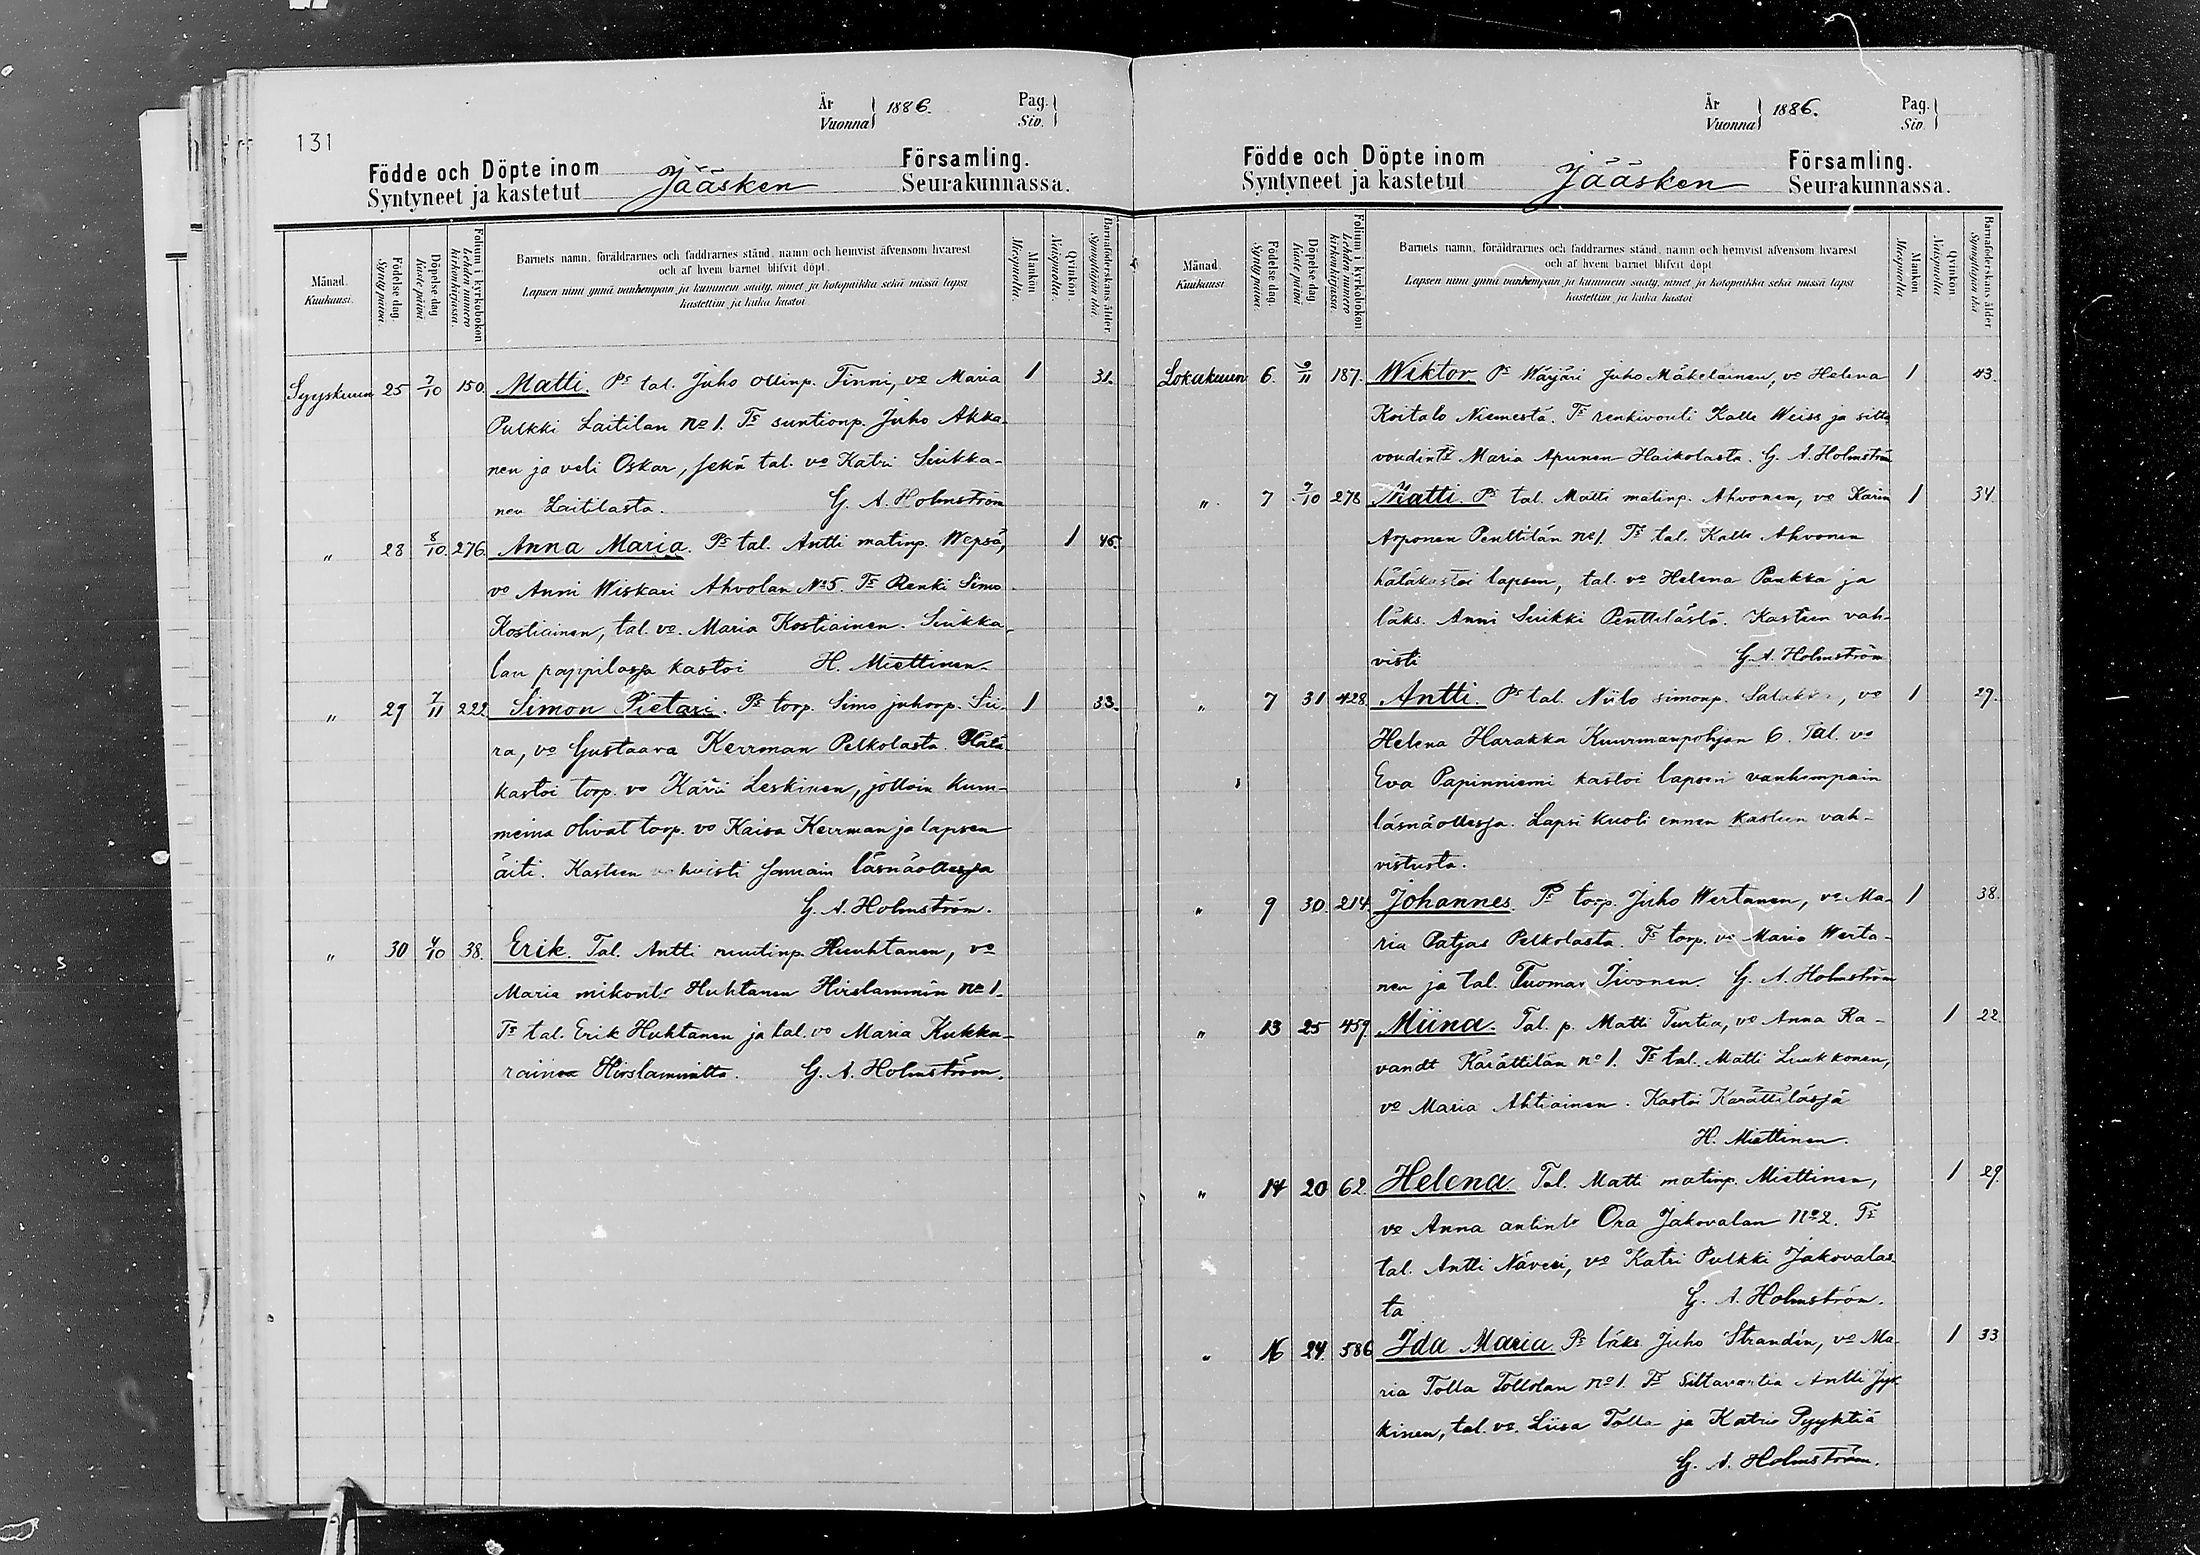 131
År
Vuonna
1886.
Pag.
Siv.
Födde och Döpte inom
Syntyneet ja kastetut
Jääsken
Församling.
Seurakunnassa.
Månad.
Kuukausi.
Födelse dag.
Synty päivä.
Döpelse dag
Kaste päivä
Folium i kyrkoboken
Lehden numero kirkonkirjassa.
Barnets namn, föräldrarnes och faddrarnes stånd, namn och hemvist äfvensom hvarest
och af hvem barnet blifvit döpt.
Lapsen nimi ynnä vanhempain ja kummein sääty, nimet ja kotopaikka sekä missä lapsi
kastettiin ja kuka kastoi
Mankön
Miespuolia.
Qvinkön
Naispuolia.
Barnaföderskans ålder
Synnyttäjän ikä
Syyskuun 25 7/10 150. Matti. Ps tal. Juho ollinp. Tinni, vo Maria 1 31.
Pulkki Laitilan No 1. Ts suntionp. Juho Akka-
nen ja veli Oskar, sekä tal. vo Katri Siukka-
nen Laitilasta. G. A. Holmström
" 28 8/10 276. Anna Maria. Ps tal. Antti matinp. Wepsä, 1 45.
vo Anni Wiskari Ahvolan No 5. Ts Renki Simo
Kostiainen, tal. vo. Maria Kostiainen. Siukka-
lan pappilassa kastoi H. Miettinen.
" 29 7/11 222 Simon Pietari. Ps torp. Simo juhonp. Sii- 1 33.
ra, vo Gustaava Kerrman Pelkolasta. Hätä
kastoi torp. vo Karii Leskinen, jolloin kum-
meina olivat torp. vo Kaisa Kerrman ja lapsen
äiti. Kasteen vahvisti samain läsnäollessa
G. A. Holmström.
" 30 4/10 38. Erik. Tal. Antti ruutinp. Huuhtanen, vo
Maria mikont. Huhtanen Hirslammin No 1.
Ts tal. Erik Huhtanen ja tal. vo Maria Kukka-
rainen Hirslammilta. G. A. Holmström.
År
Vuonna
1886.
Pag.
Siv.
Födde och Döpte inom
Syntyneet ja kastetut
Jääsken
Församling.
Seurakunnassa.
Månad.
Kuukausi.
Födelse dag.
Synty päivä.
Döpelse dag
Kaste päivä
Folium i kyrkoboken.
Lehden numero kirkonkirjassa.
Barnets namn, föräldrarnes och faddrarnes stånd, namn och hemvist äfvensom hvarest
och af hvem barnet blifvit döpt.
Lapsen nimi ynnä vanhempain ja kummein sääty, nimet ja kotopaikka sekä missä lapsi
kastettiin ja kuka kastoi
Mankön
Miespuolia
Qvinkön
Naispuolia
Barnaföderskans ålder
Synnyttäjän ikä
Lokakuun 6. 9/11 187. Wiktor. Ps Wärjäri Juho Mäkeläinen, vo Helena 1 43.
Koitalo Niemestä. Ts renkivouti Kalle Weiss ja silta
voudint. Maria Apunen Haikolasta. G. A. Holmström
" 7 7/10 278 Matti. Ps tal. Matti matinp. Ahvonen, vo Karin 1 34.
Arponen Penttilän No 1. Ts tal. Kalle Ahvonen
hätäkastoi lapsen, tal. vo Helena Paukka ja
läks. Anni Siukki Penttilästä. Kasteen vah-
visti G. A. Holmström
" 7 31 428 Antti. Ps tal. Niilo simonp. Salakka, vo 1 29.
Helena Harakka Kuurmanpohjan 6. Tal. vo
Eva Papinniemi kastoi lapsen vanhempain
läsnäollessa. Lapsi kuoli ennen kasteen vah-
vistusta.
" 9 30. 214. Johannes. Ps torp. Juho Wertanen, vo Ma- 1 38.
ria Patjas Pelkolasta. Ts torp. vo Maria Werta-
nen ja tal. Tuomas Iivonen. G. A. Holmström
" 13 25 459. Miina. Tal. p. Matti Turtia, vo Anna Ka- 1 22
vandt Kärättilän No 1. Ts tal. Matti Luukkonen,
vo Maria Ahtiainen. Kastoi Kärättilässä
H. Miettinen.
" 14 20 62. Helena. Tal. Matti matinp. Miettinen, 1 29.
vo Anna antint. Ora Jakovalan No 2. Ts
tal. Antti Näveri, vo Katri Pulkki Jakovalas-
ta G. A. Holmström.
" 16 24. 586 Ida Maria. Ps läks Juho Strandin, vo Ma- 1 33
ria Tolla Tollolan No 1. Ts Siltavartia Antti Jyk
kinen, tal. vo. Liisa Tolla ja Katri Pyyhtiä
G. A. Holmström.